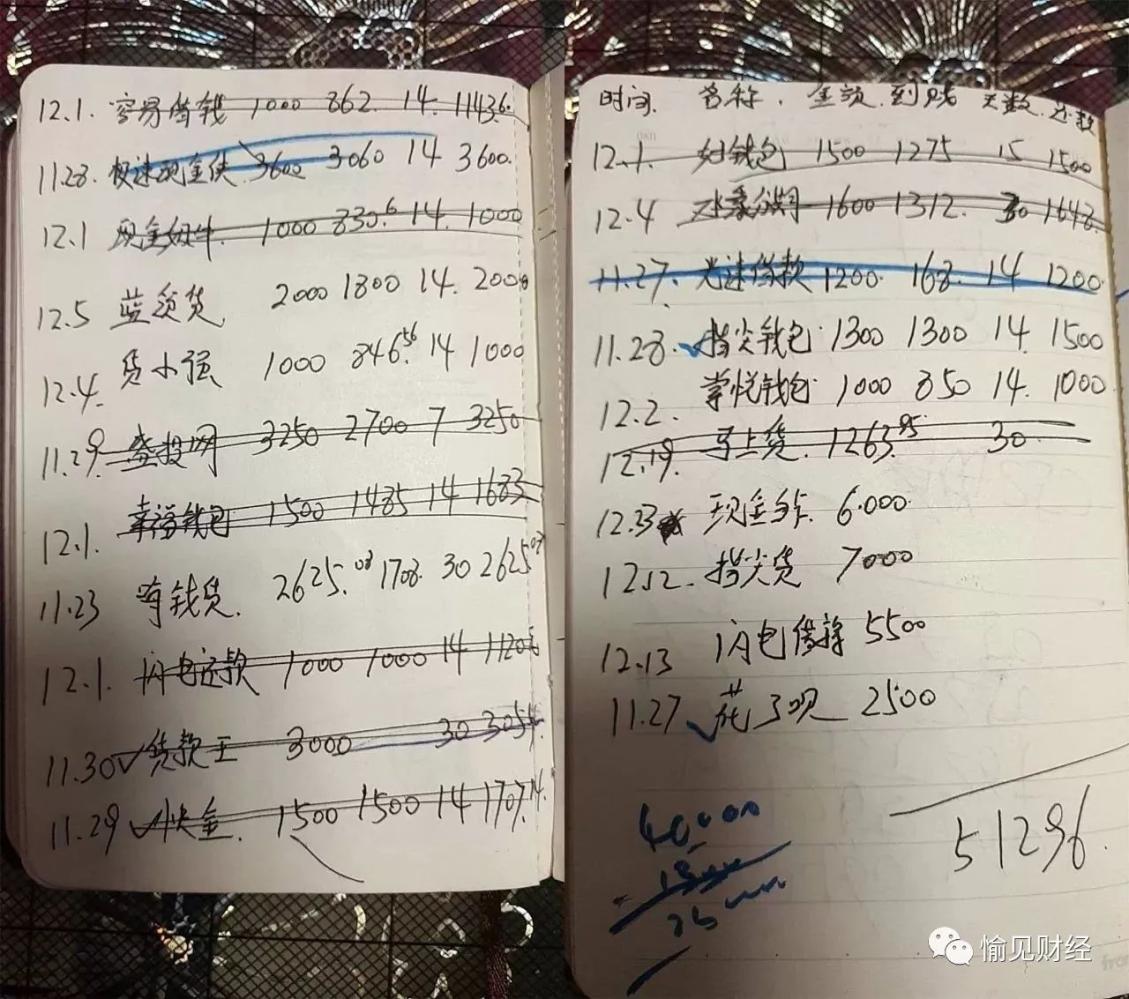 12.1. 容易借钱 1000 862 14. 11436.
11.28. 极速现金侠 3600 3060 14 3600.
12.1 现金奶牛. 1000 830.6 14. 1000
12.5 蓝领贷. 2000 1800 14. 2000
12.4. 贷小强 1000 846.56 14 1000
11.29. 盛投网 3250 2700 7 3250
12.1. 幸福钱包 1500 1485 14 1683
11.23 有钱贷. 2625.08 1708. 30 2625.08
12.1. 闪电还款 1000 1000 14 1120
11.30 ✓ 贷款王 3000 30 3054.
11.29 ✓ 快金. 1500 1500 14 1707.14
时间. 名称. 金额 到账 天数. 还款
12.1. 钱包 1500 1275 15 1500
12.4 大象分期 1600 1312. 30 1648.
11.27. 光速借款 1200. 168. 14 1200.
11.28. ✓ 指尖钱包 1300 1300 14 1500
12.2. 掌悦钱包 1000 850 14. 1000
12.19. 马上贷. 1263.95 30
12.3 现金 6.000.
12.12. 指尖贷 7000
12.13 闪电借 5500
11.27 ✓ 花了呗 2500
51296.
40000
愉见财经